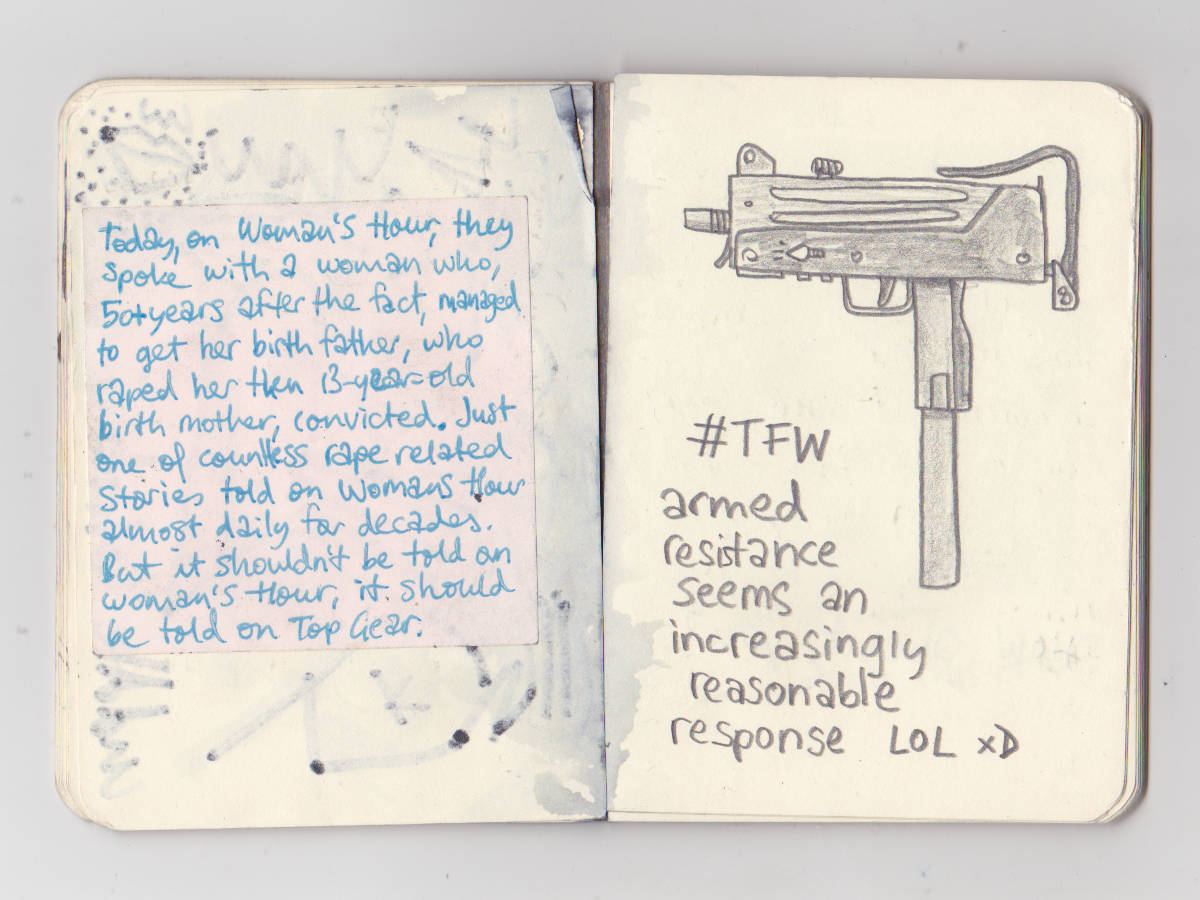 Today, on Woman's Hour, they
spoke with a woman who,
50+years after the fact, managed
to get her birth father, who
raped her then 13-year-old
birth mother, convicted. Just
one of countless rape related
stories told on Womans Hour
almost daily for decades.
But it shouldn't be told on
woman's Hour, it should
be told on Top Gear.
#TFW
armed
resistance
seems an
increasingly
reasonable
response LOL xD